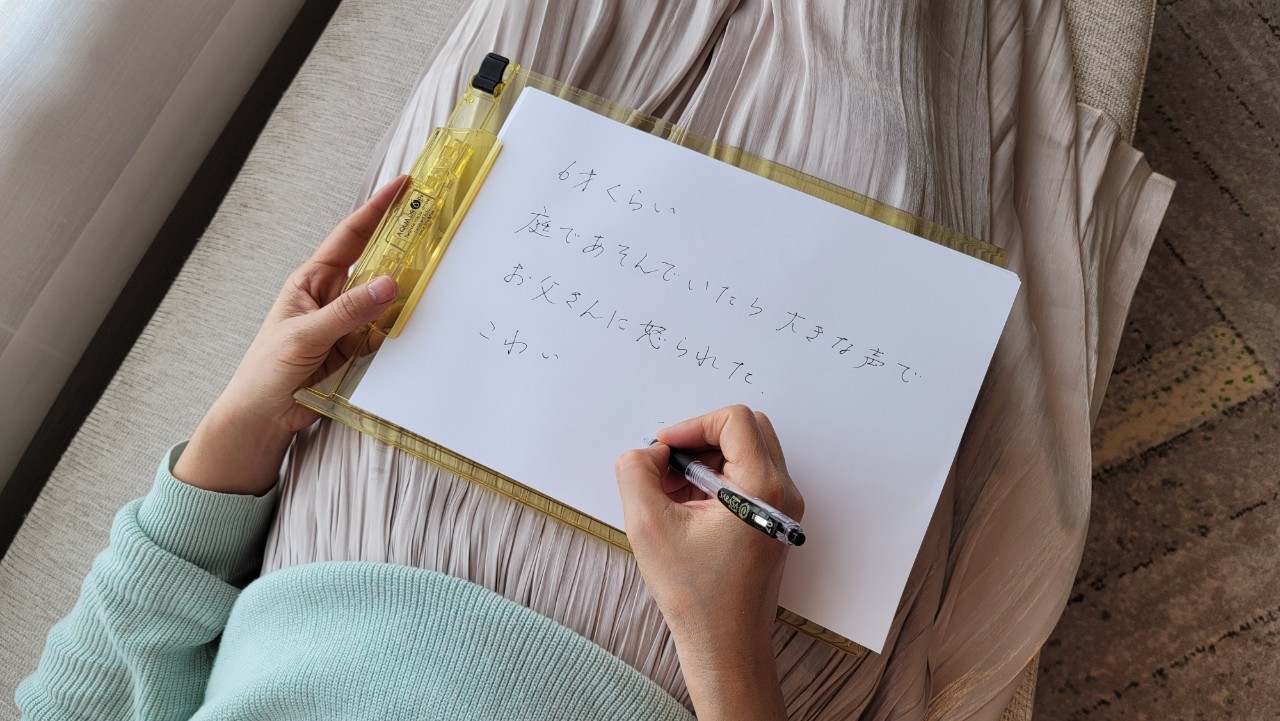 6才くらい
庭であそんでいたら大きな声で
お父さんに怒られた.
こわい
SARASA